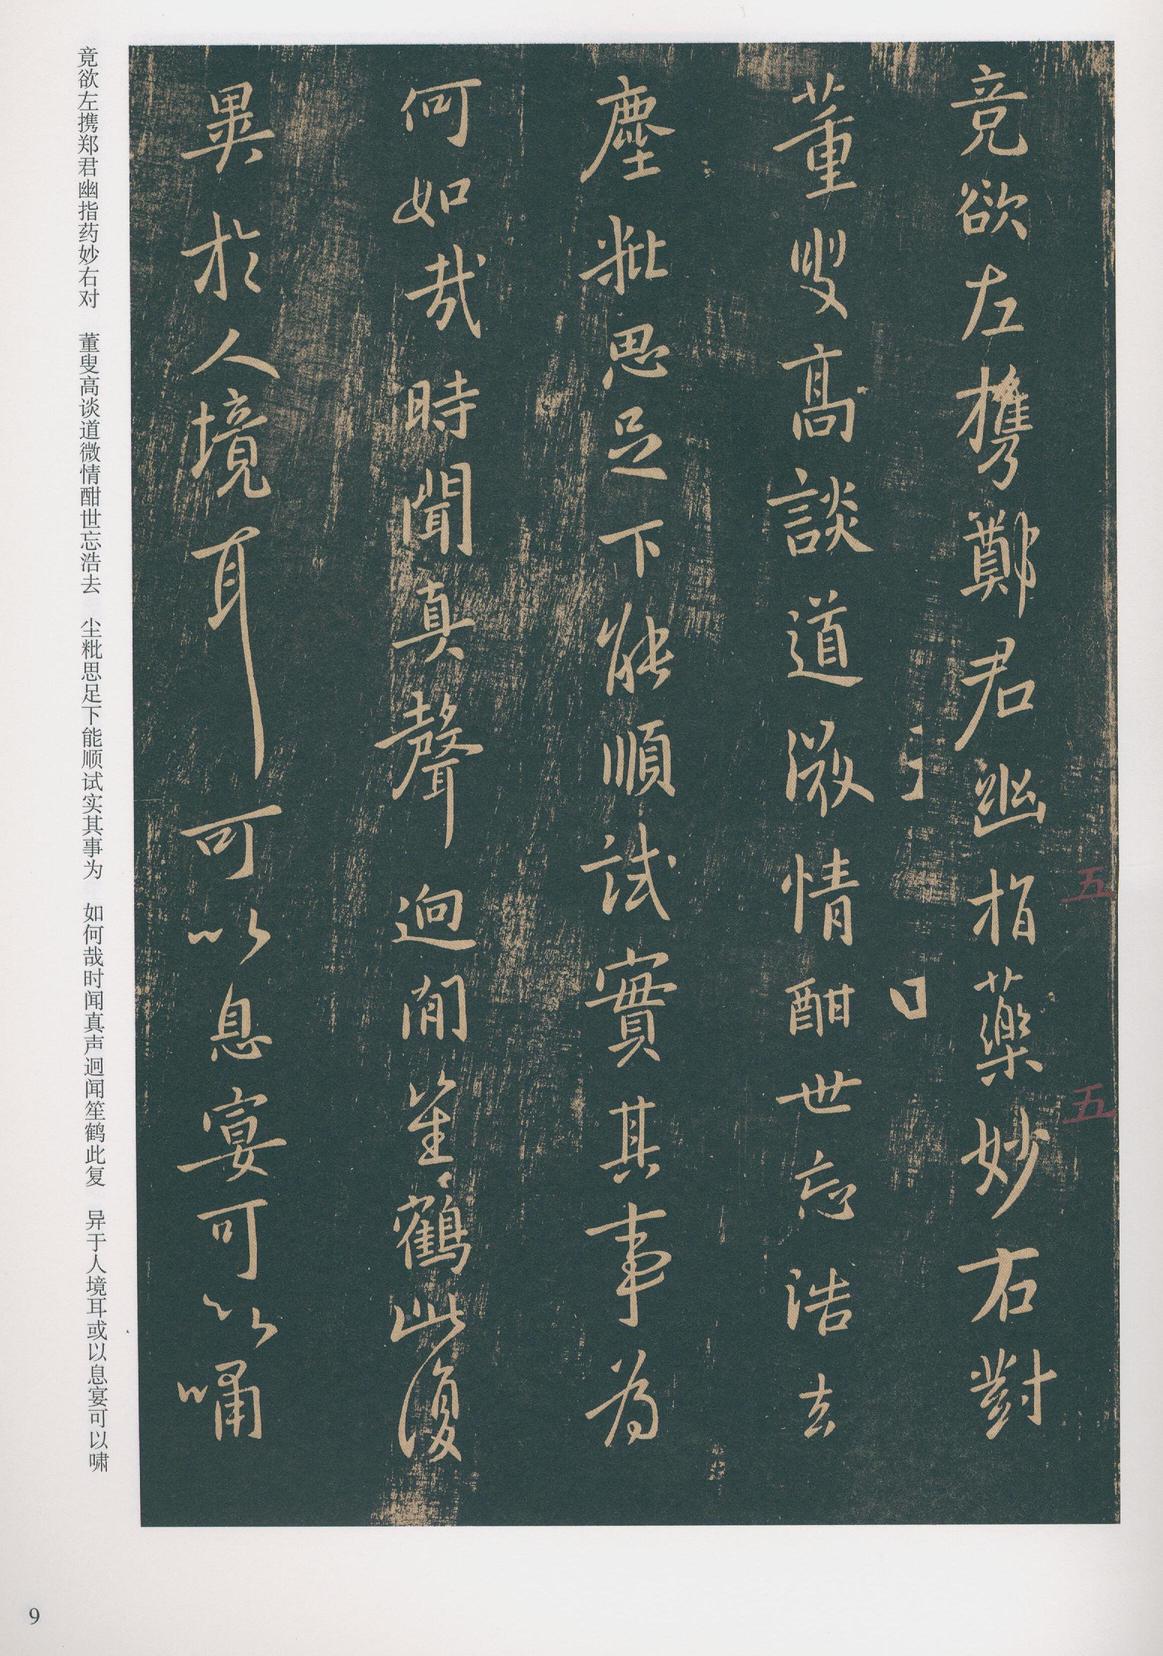 竟欲左攜鄭君幽指藥妙右對
董叟高談道微情酣世忘浩去
塵粃思足下能順試實其事為
何如哉時聞真聲迥聞笙鶴此復
異於人境耳可以息宴可以嘯
五
五
竟欲左携郑君幽指药妙右对 董叟高谈道微情酣世忘浩去 尘粃思足下能顺试实其事为 如何哉时闻真声迥闻笙鹤此复 异于人境耳或以息宴可以啸
9